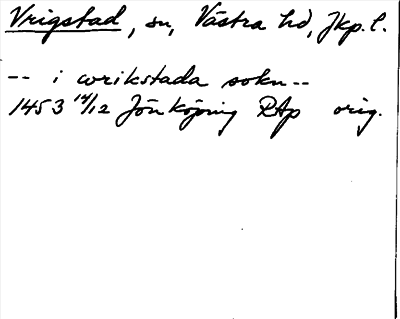 Vrigstad, sn, Västra hd, Jkp. l.
-- i wrikstada sokn --
1453 14/12 Jönköping RAp orig.